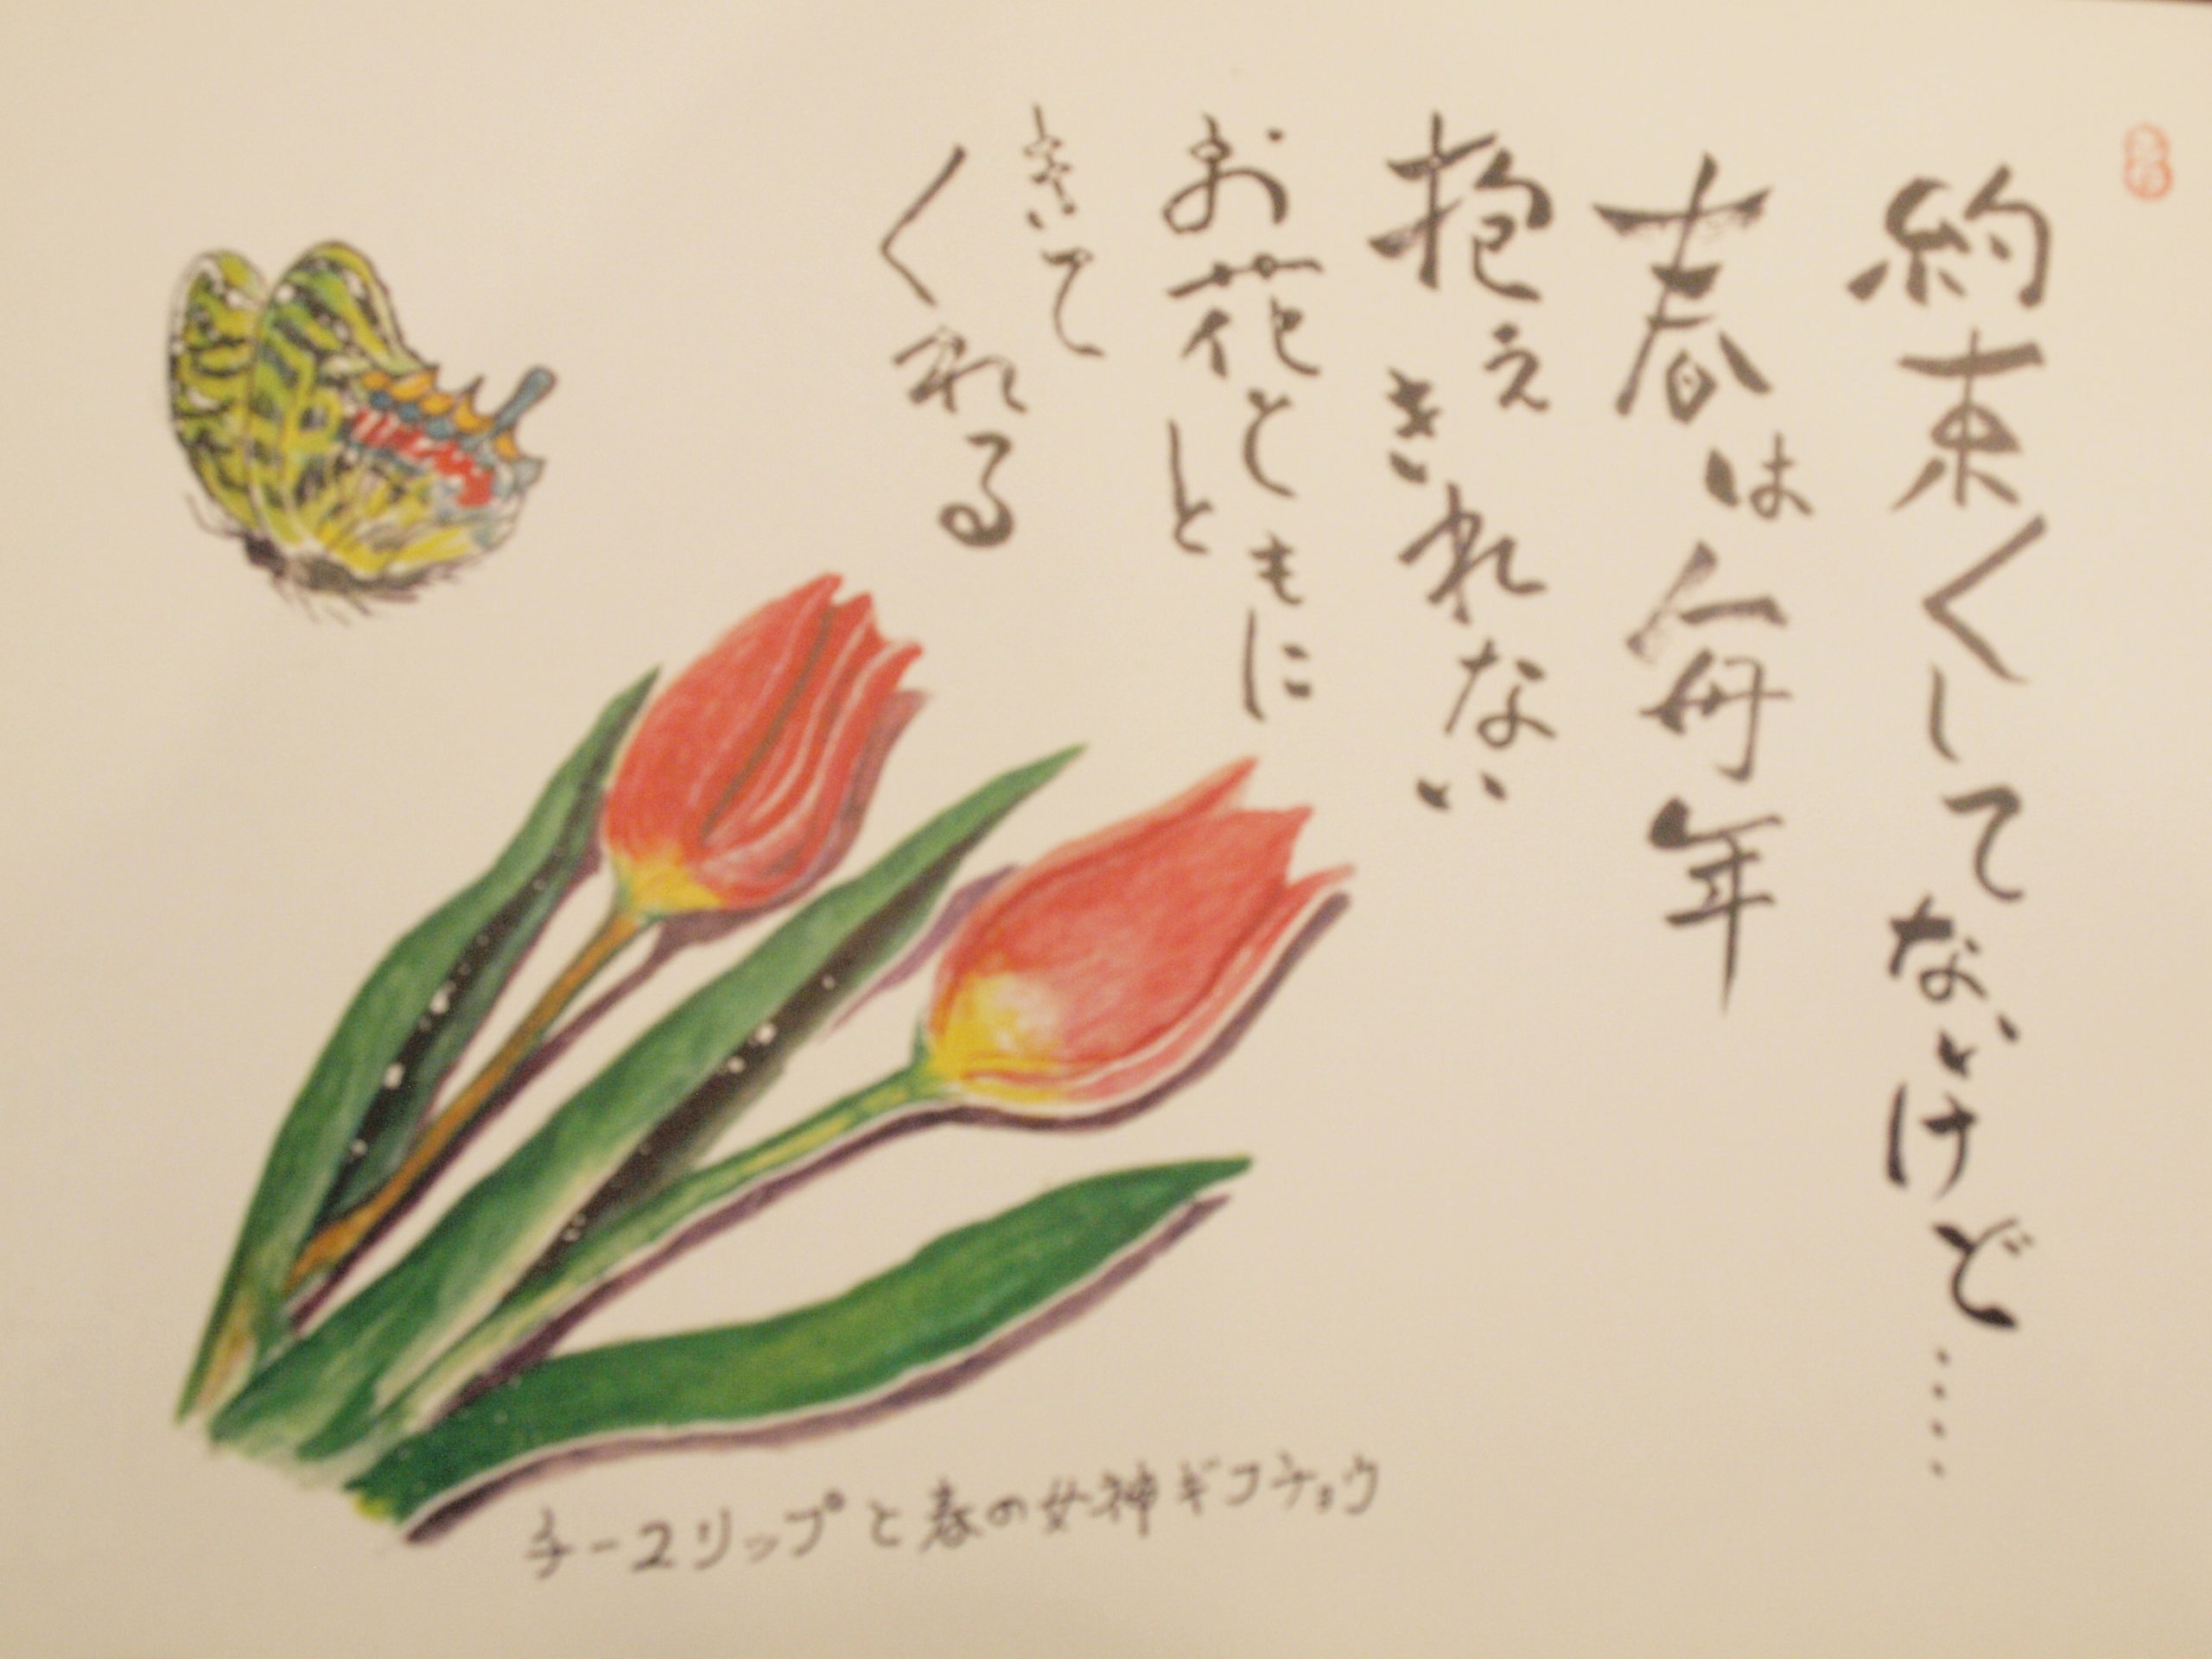 約束くしてないけど‥‥
春は毎年
抱えきれない
お花とともに
きて
くれる
チーユリップと春の女神ギフチョウ